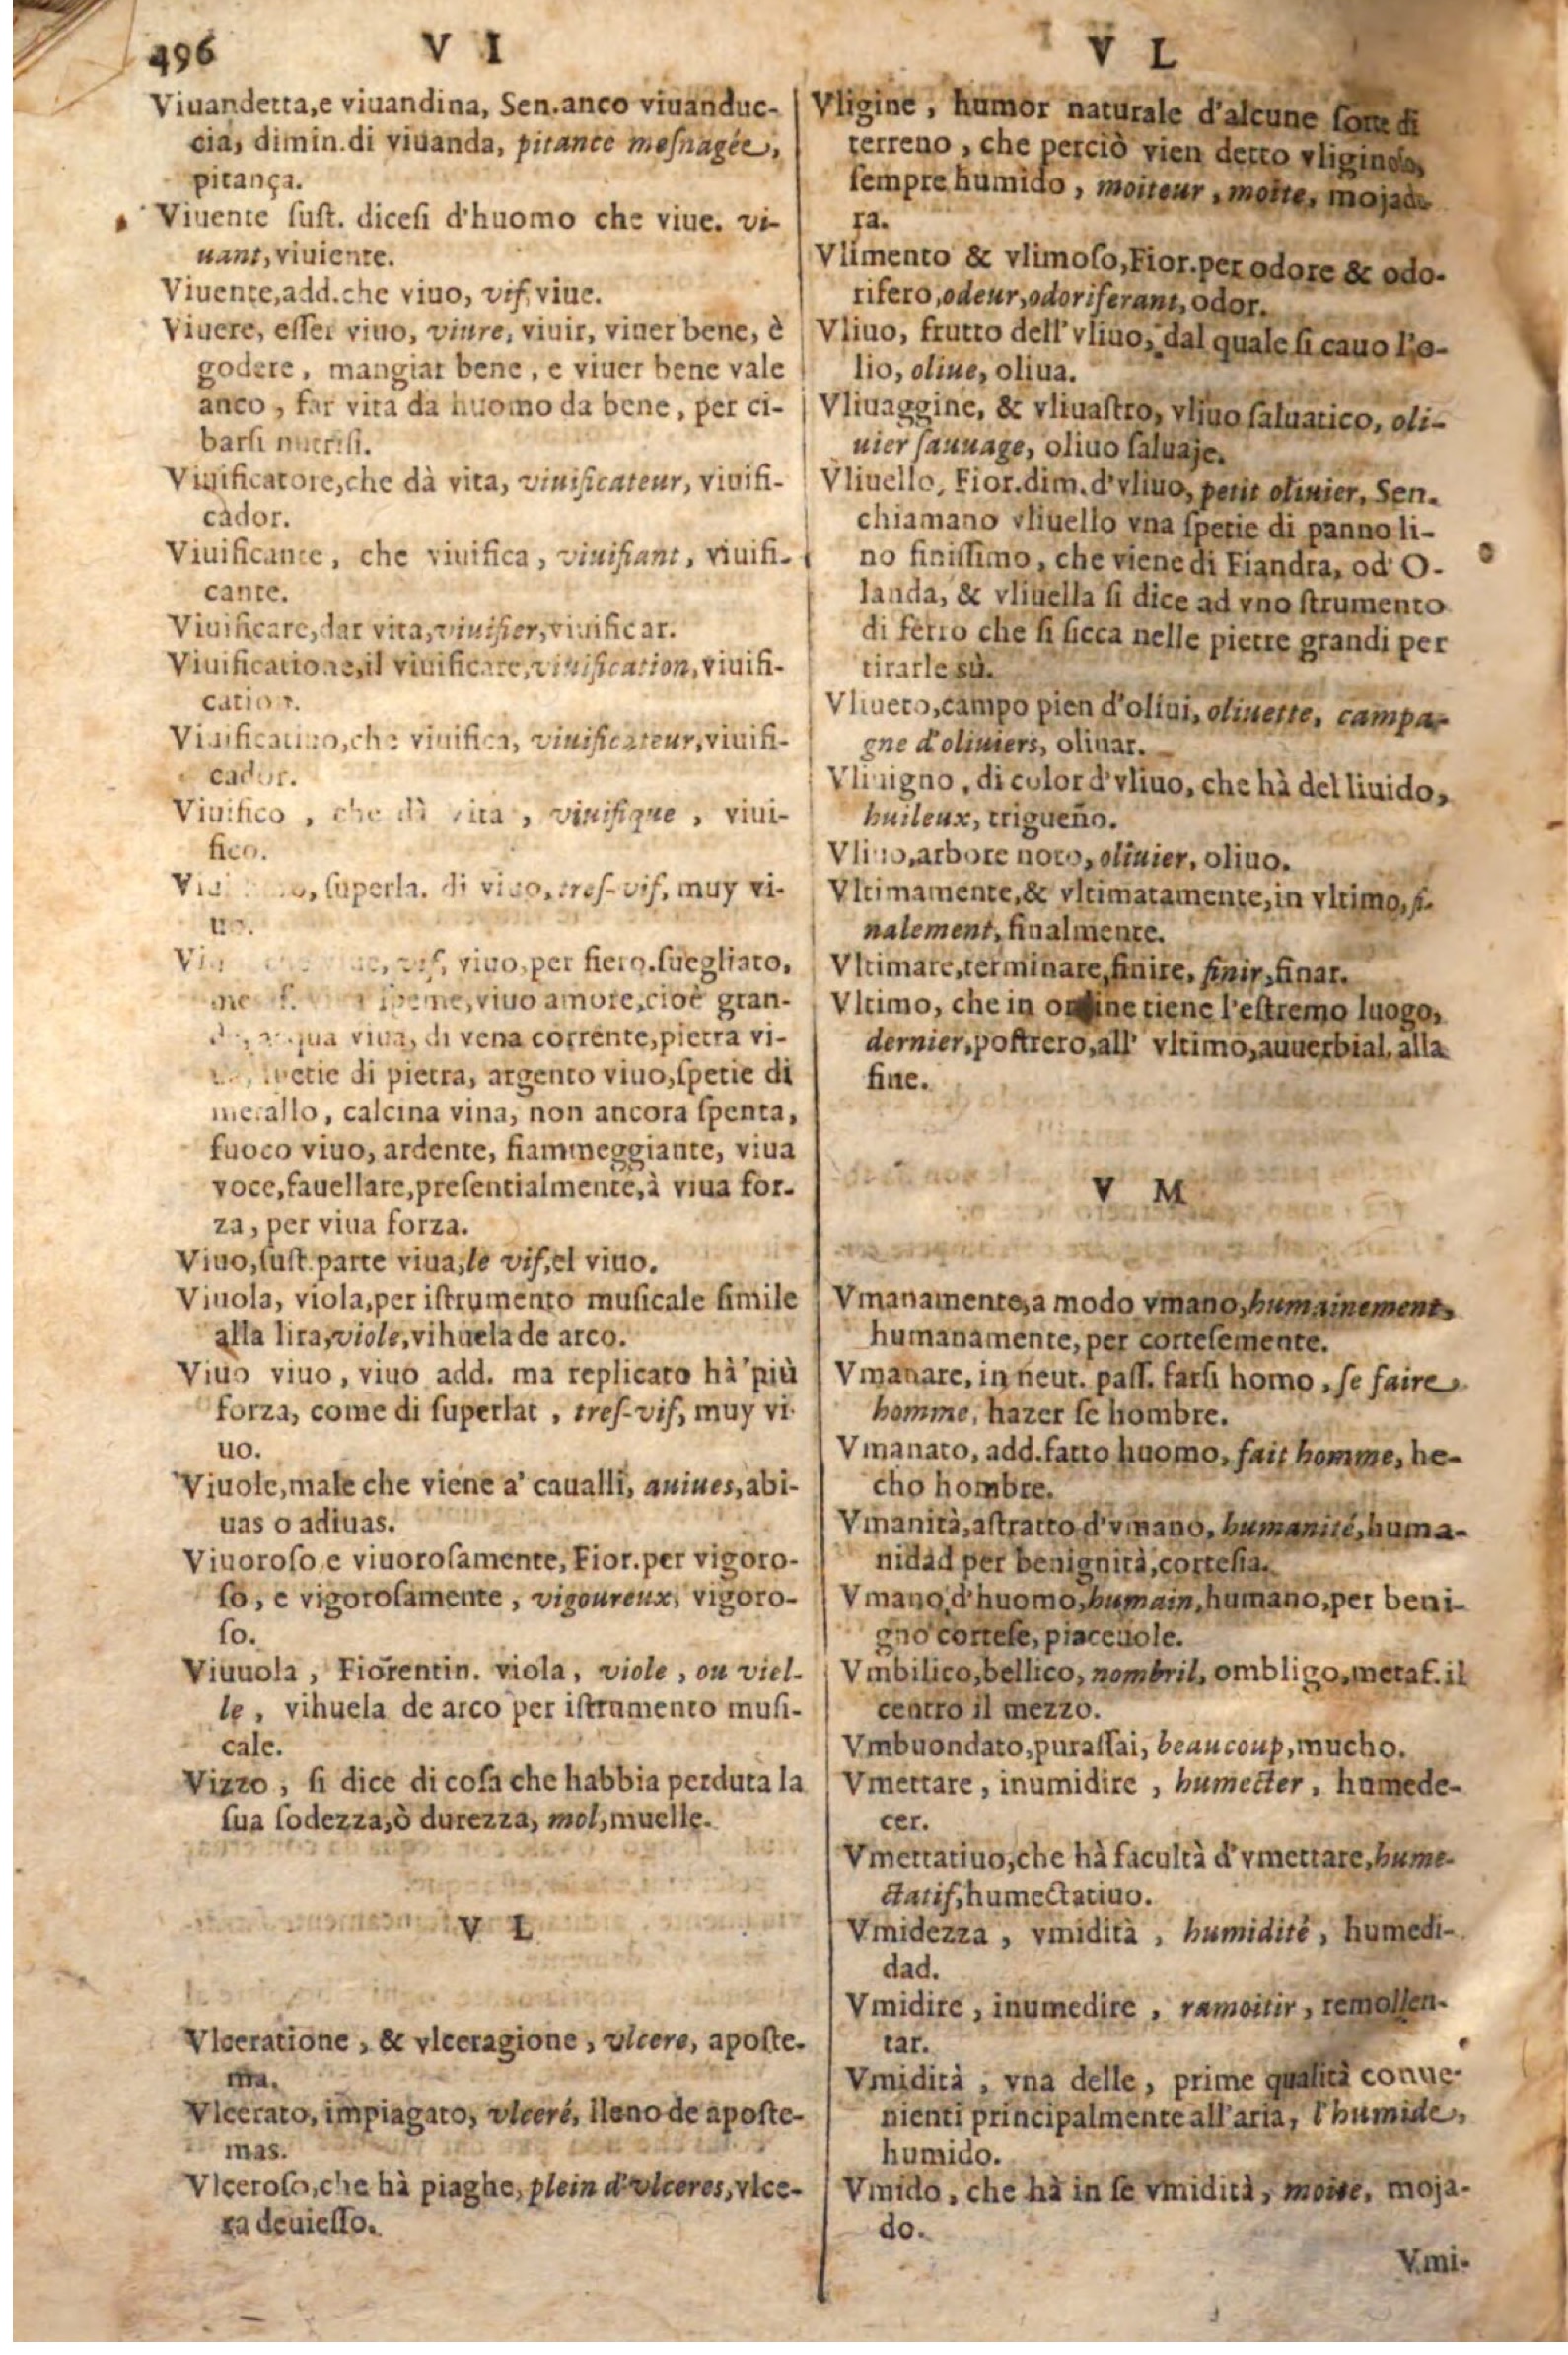 496
V I
Viuandetta,e viuandina, Sen.anco viuanduc-
cia, dimin.di viuanda, pitance meſnagée,
pitança.
Viuente ſuſt. diceſi d'huomo che viue. vi-
uant, viuiente.
Viuente,add.che viuo, vif, viue.
Viuere, eſſer viuo, viure, viuir, viuer bene, è
godere, mangiar bene, e viuer bene vale
anco, far vita da huomo da bene, per ci-
barſi nutriſi.
Viuificatore,che dà vita, viuificateur, viuifi-
cador.
Viuificante, che viuifica, viuifiant, viuifi-
cante.
Viuificare,dar vita,viuifier,viuificar.
Viuificatione,il viuificare,viuification,viuifi-
cation.
Viuificatiuo,che viuifica, viuificateur,viuifi-
cador.
Viuifico , che dà vita , viuifique , viui-
fico.
ſuperla. di viuo,tres-vif, muy vi-
uo.
vif, viuo,per fiero.ſuegliato,
ſpeme,viuo amore,cioè gran-
viua, di vena corrente,pietra vi-
di pietra, argento viuo,ſpetie di
metallo, calcina viua, non ancora ſpenta,
fuoco viuo, ardente, fiammeggiante, viua
voce,fauellare,preſentialmente,à viua for-
za, per viua forza.
Viuo,ſuſt.parte viua,le vif,el viuo.
Viuola, viola,per iſtrumento muſicale ſimile
alla lira,viole,vihuela de arco.
Viuo viuo, viuo add. ma replicato hà più
forza, come di ſuperlat , treſ-vif, muy vi-
uo.
Viuole,male che viene a' caualli, auiues,abi-
uas o adiuas.
Viuoroſo e viuoroſamente, Fior.per vigoro-
ſo, e vigoroſamente, vigoureux, vigoro-
ſo.
Viuuola , Fiorentin. viola, viole , ou viel-
le , vihuela de arco per iſtrumento muſi-
cale.
Vizzo , ſi dice di coſa che habbia perduta la
ſua ſodezza,ò durezza, mol,muelle.
V L
Vlceratione , & vlceragione , vlcere, apoſte-
ma.
Vlcerato, impiagato, vlceré, lleno de apoſte-
mas.
Vlceroſo,che hà piaghe, plein d'vlceres,vlce-
ra deuieſſo.
V L
Vligine , humor naturale d'alcune ſorte di
terreno , che perciò vien detto vliginoſo,
ſempre humido , moiteur , moite, mojadu-
ra.
Vlimento & vlimoſo,Fior.per odore & odo-
rifero,odeur,odoriferant, odor.
Vliuo, frutto dell'vliuo, dal quale ſi cauo l'o-
lio, oliue, oliua.
Vliuaggine, & vliuaſtro, vliuo ſaluatico, oli-
uier ſauuage, oliuo ſaluaje.
Vliuello, Fior.dim.d'vliuo, petit oliuier, Sen.
chiamano vliuello vna ſpetie di panno li-
no finiſſimo, che viene di Fiandra, od O-
landa, & vliuella ſi dice ad vno ſtrumento
di ferro che ſi ficca nelle pietre grandi per
tirarle sù.
Vliueto,campo pien d'oliui, oliuette, campa-
gne d'oliuiers, oliuar.
Vliuigno, di color d'vliuo, che hà del liuido,
huileux, trigueño.
Vliuo,arbore noto, oliuier, oliuo.
Vltimamente,& vltimatamente,in vltimo, fi-
nalement, finalmente.
Vltimare,terminare,finire, finir,finar.
Vltimo, che in ordine tiene l'eſtremo luogo,
dernier,poſtrero,all' vltimo,auuerbial. alla
fine.
V M
Vmanamente,a modo vmano,humainement,
humanamente, per corteſemente.
Vmanare, in neut. paſſ. farſi homo, ſe faire
homme, hazer ſe hombre.
Vmanato, add.fatto huomo, fait homme, he-
cho hombre.
Vmanità,aſtratto d'vmano, humanité,huma-
nidad per benignità,corteſia.
Vmano,d'huomo,humain,humano,per beni-
gno corteſe, piaceuole.
Vmbilico,bellico, nombril, ombligo,metaf.il
centro il mezzo.
Vmbuondato,puraſſai, beaucoup,mucho.
Vmettare , inumidire , humecter , humede-
cer.
Vmettatiuo,che hà facultà d'vmettare,hume-
ctatif,humectatiuo.
Vmidezza , vmidità , humidité , humedi-
dad.
Vmidire , inumedire , ramoitir , remollen-
tar.
Vmidità , vna delle , prime qualità conue-
nienti principalmente all'aria, l'humide,
humido.
Vmido , che hà in ſe vmidità, moite, moja-
do.
Vmi-